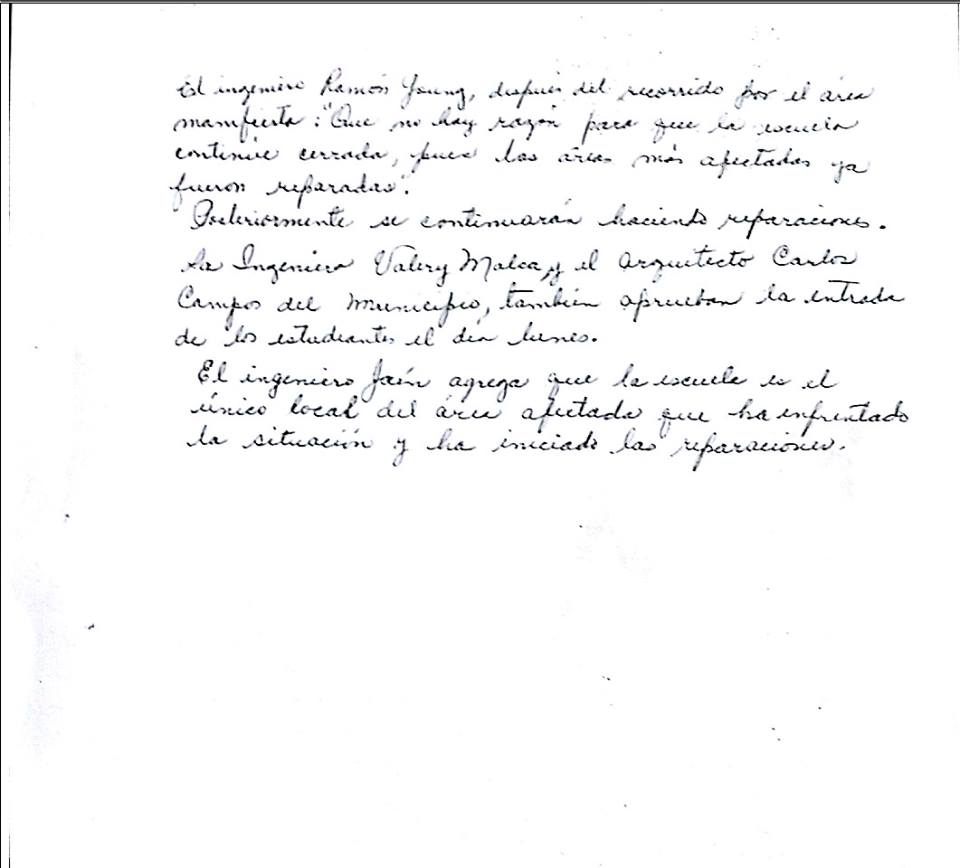 El ingeniero Ramón Young, después del recorrido por el área
manifiesta: "Que no hay razón para que la escuela
continúe cerrada, pues las áreas más afectadas ya
fueron reparadas".
Posteriormente se continuarán haciendo reparaciones.
La Ingeniero Valery Malca, y el Arquitecto Carlos
Campos del Municipio, también aprueban la entrada
de los estudiantes el día lunes.
El ingeniero Jaén agrega que la escuela es el
único local del área afectada que ha enfrentado
la situación y ha iniciado las reparaciones.